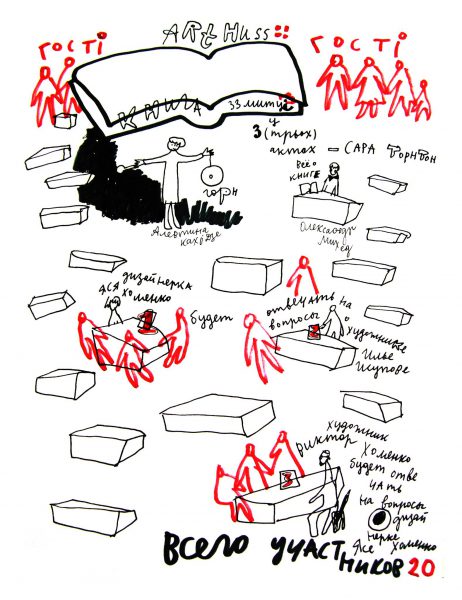 ARt Huss
ГОСТі
ГОСТі
КНИГА
33 митці
у
3 (трьох)
актах – САРА ТОРНТОН
ВСЁ О
КНИГЕ
ГОРН
Алевтина
Кахідзе
Олександр
Михед
ЯСЯ дизайнерка
Хоменко
будет
отвечать на
вопросы
о
художнике
Илье
Исупове
художник
Виктор Хоменко
будет отве
чать
на вопросы
о дизай
нерке
Ясе Хоменко
Всего участ
ников 20